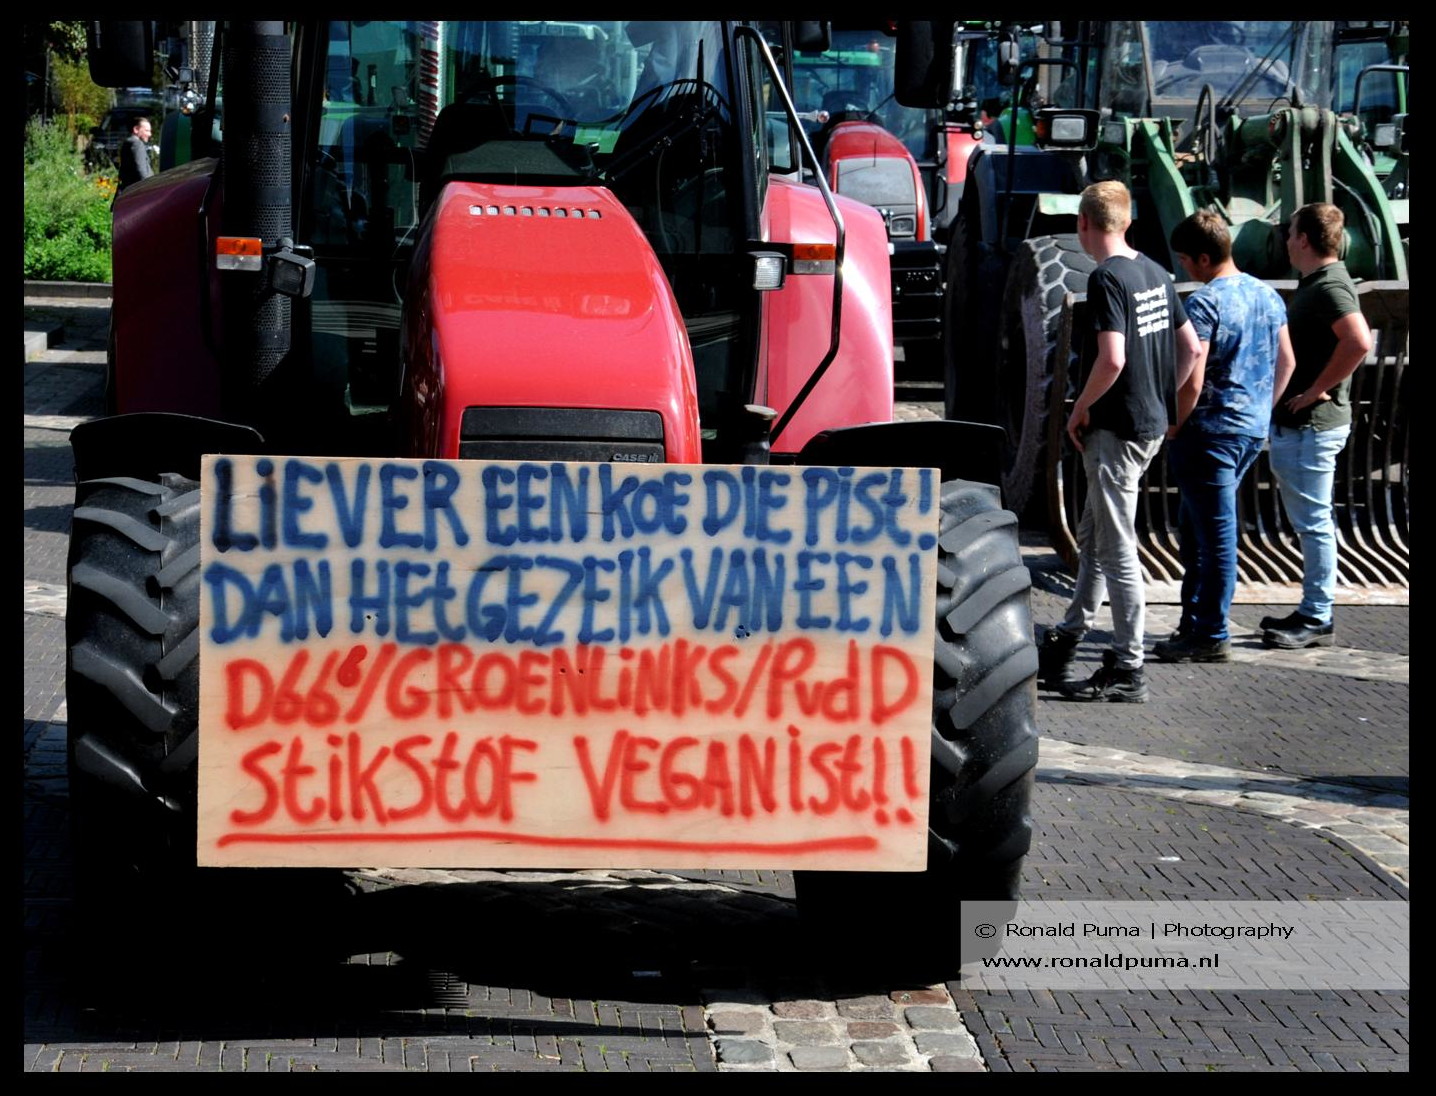 CASE IH
LiEVER EEN koE DIE PiSt!
DAN HEt GEZEIK VAN EEN
D66/GROENLiNKS/PvdD
StikStOF VEGANiSt!!
© Ronald Puma | Photography
www.ronaldpuma.nl